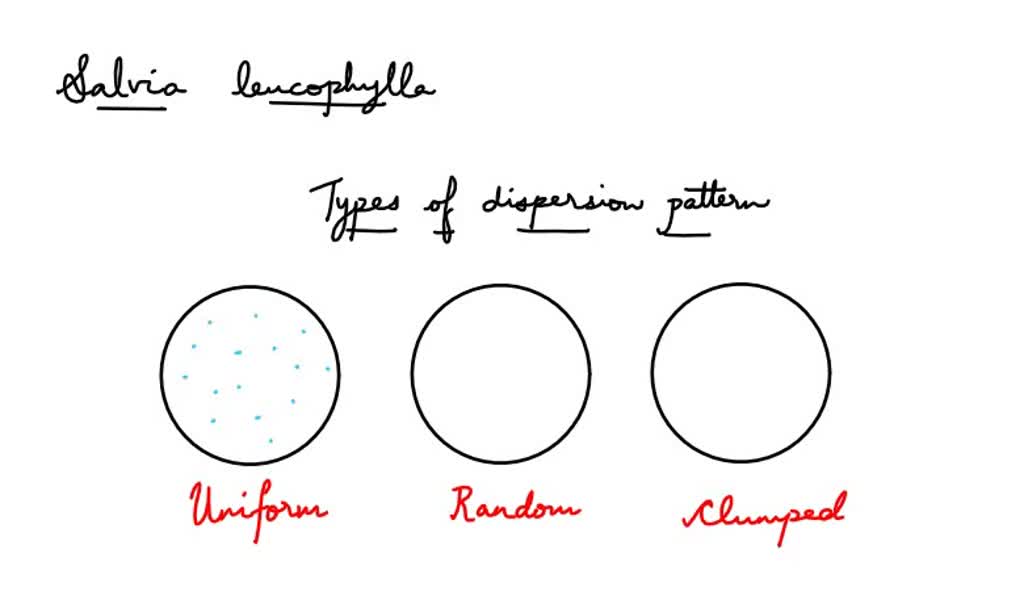 Salvia leucophylla
Types of dispersion pattern
Uniform Random Clumped